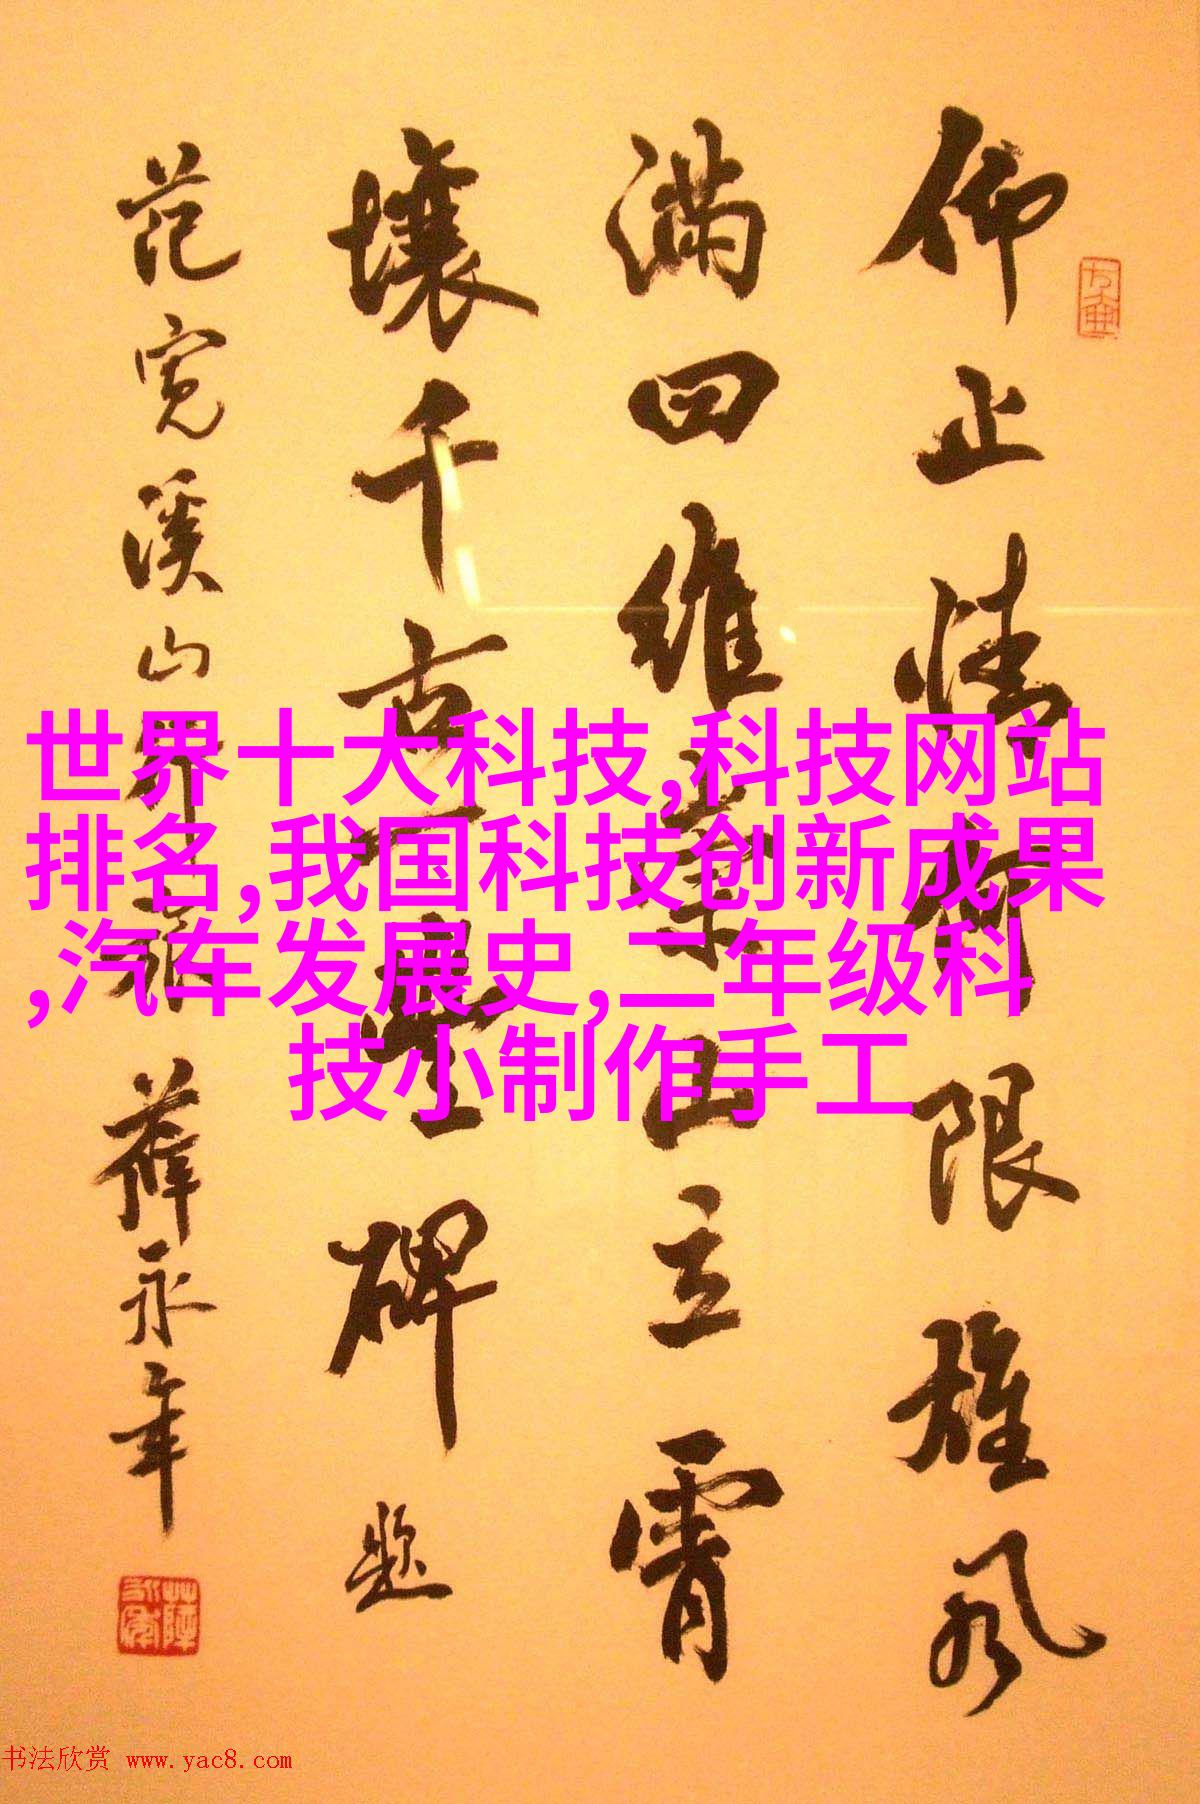 仰止情何限雄风
满四维業山立霄
壤千古一豊碑
题
范宽溪山
薛永年
世界十大科技,科技网站
排名,我国科技创新成果
,汽车发展史,二年级科
技小制作手工
书法欣赏 www.yac8.com